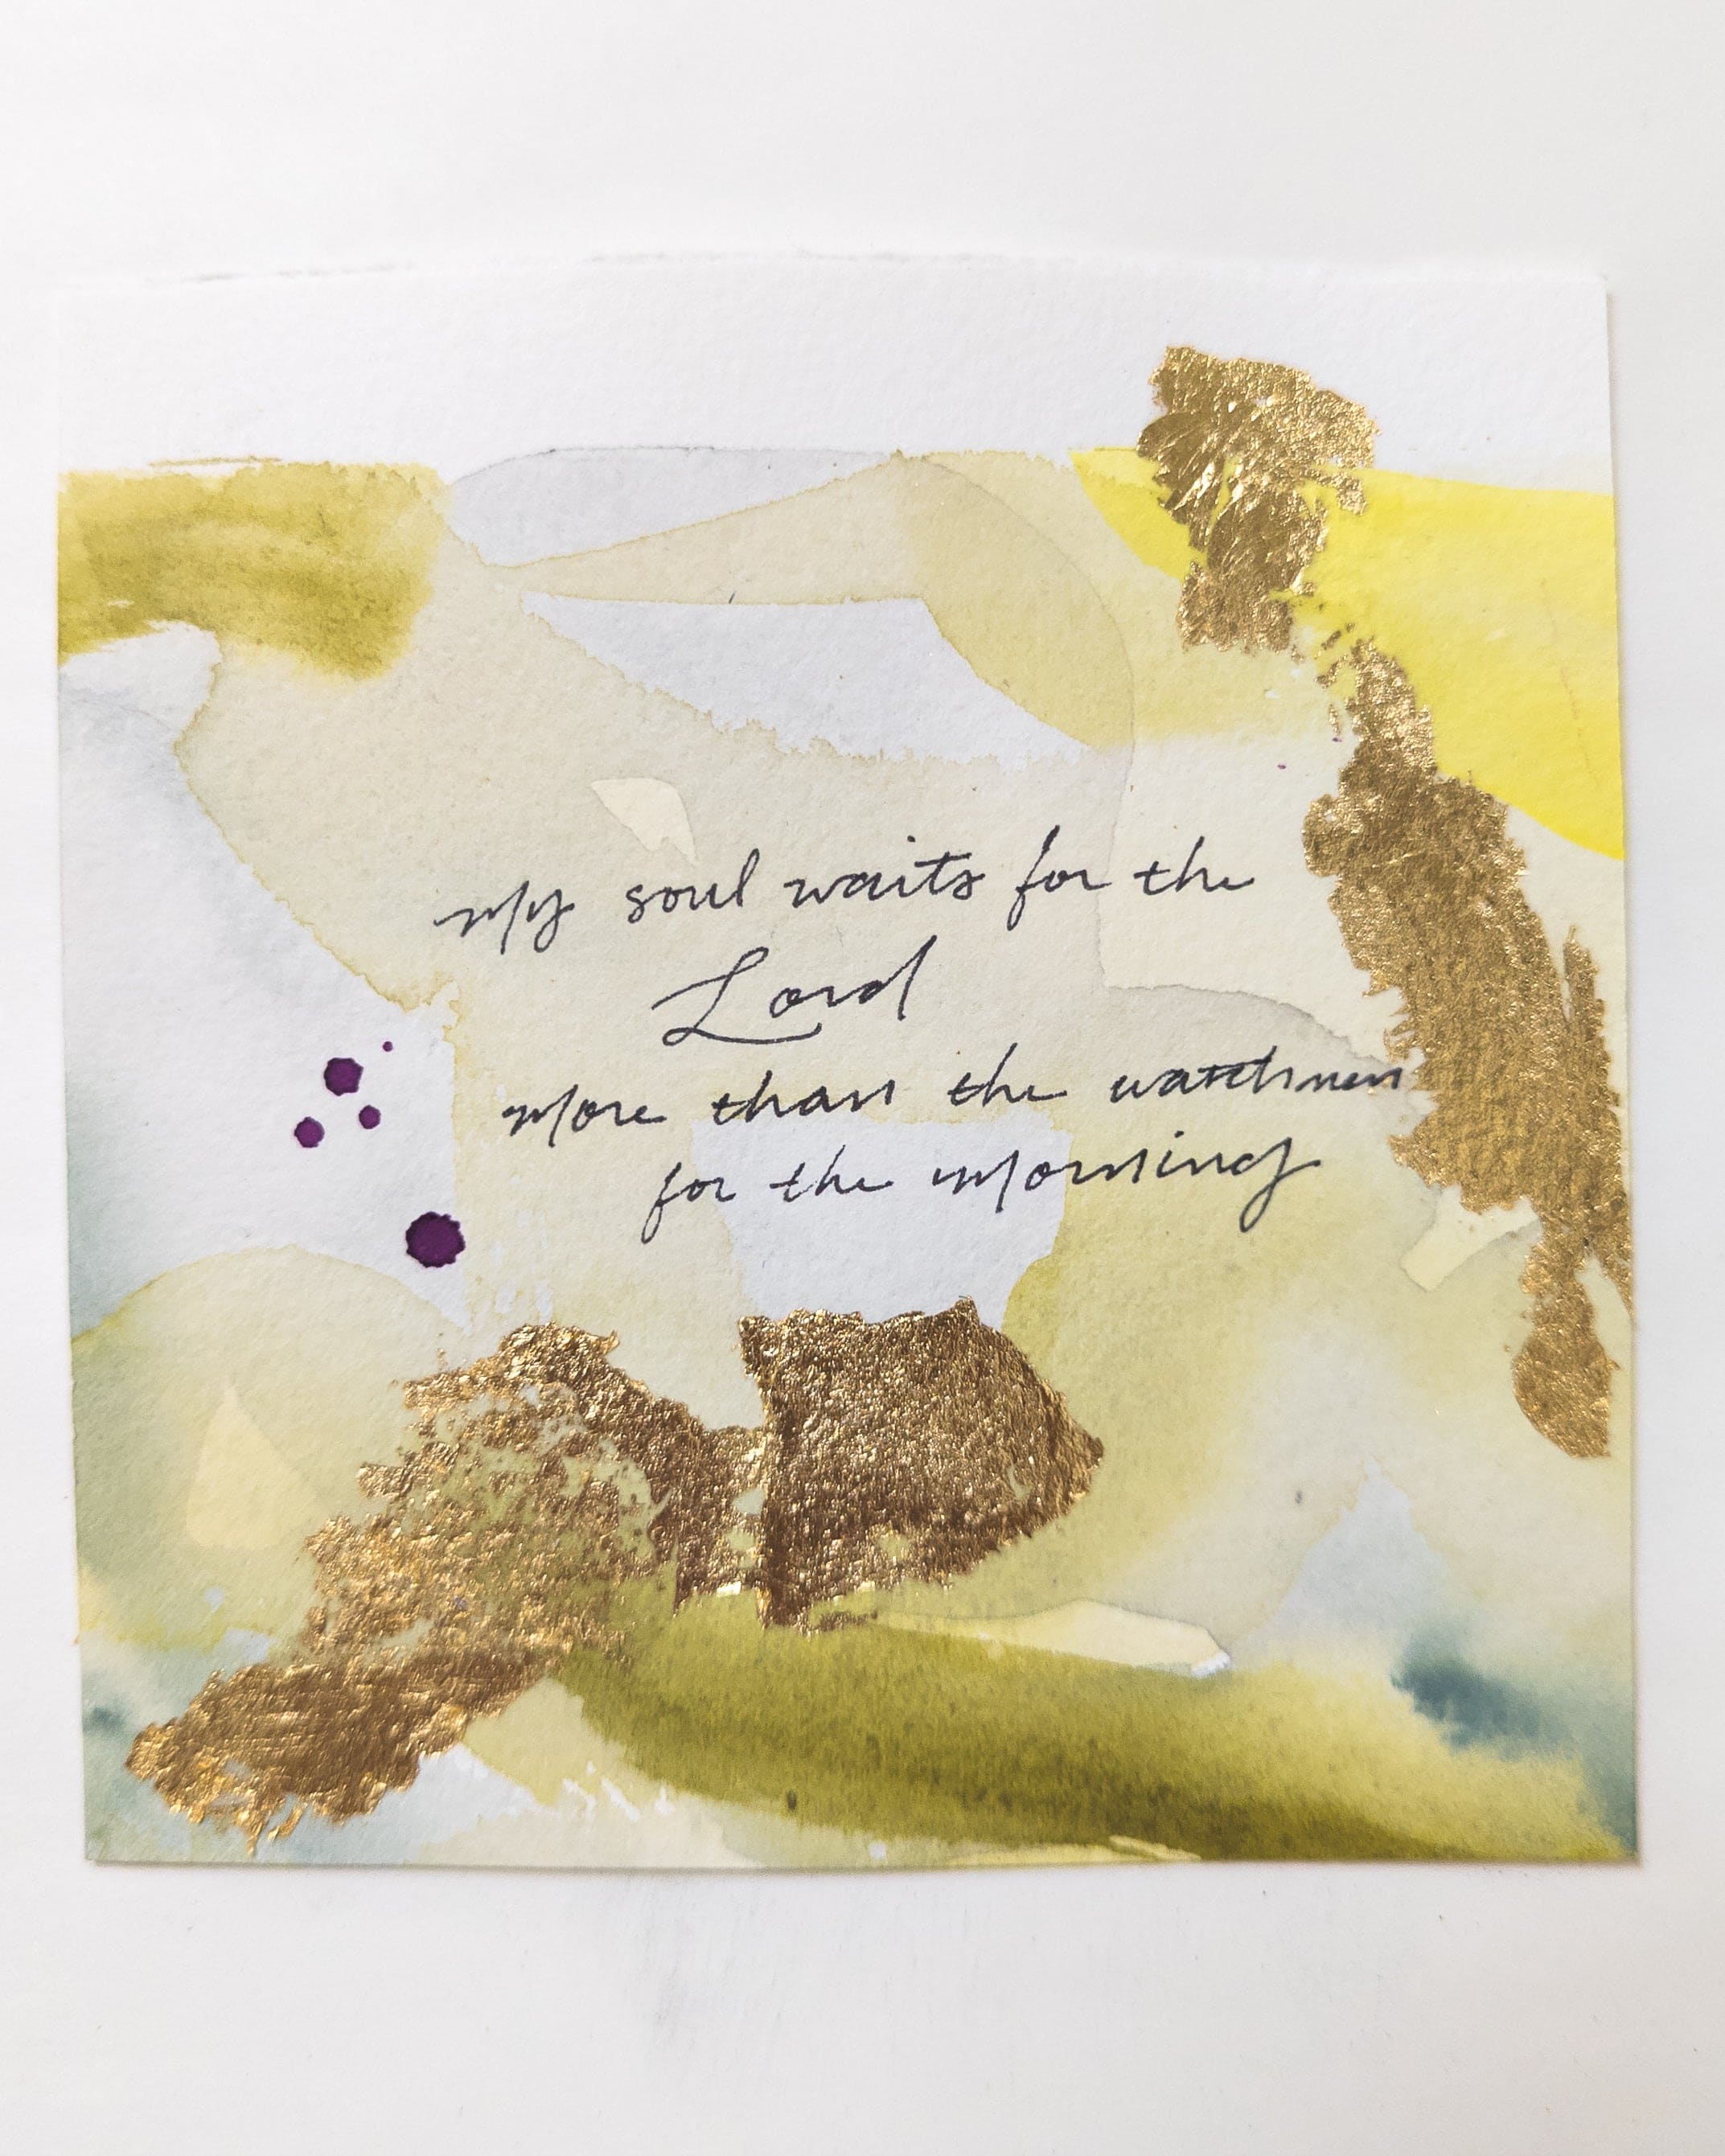 My soul waits for the
Lord
More than the watchmen
for the Morning